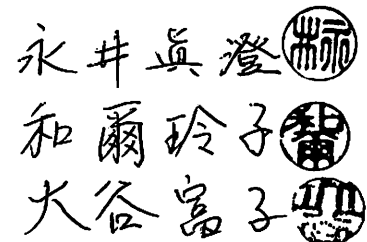 永井眞澄
和爾玲子
大谷富子